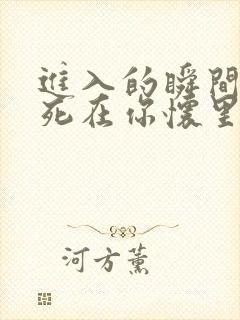 進入的瞬間
死在你懷里
河方薰